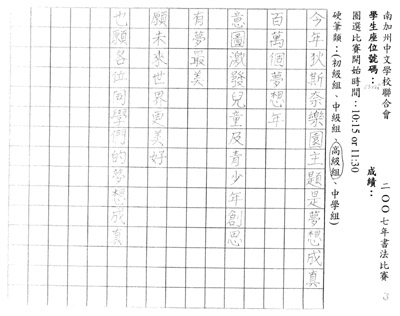 南加州中文學校聯合會 二〇〇七年書法比賽
學生座位號碼： 成績：
圈選比賽開始時間：10:15 or 11:30
硬筆類：(初級組、中級組、高級組、中學組)
今年狄斯奈樂園主題是夢想成真
百萬個夢想年
意圖激發兒童及青少年創思
有夢最美
願未來世界更美好
也願各位同學們的夢想成真